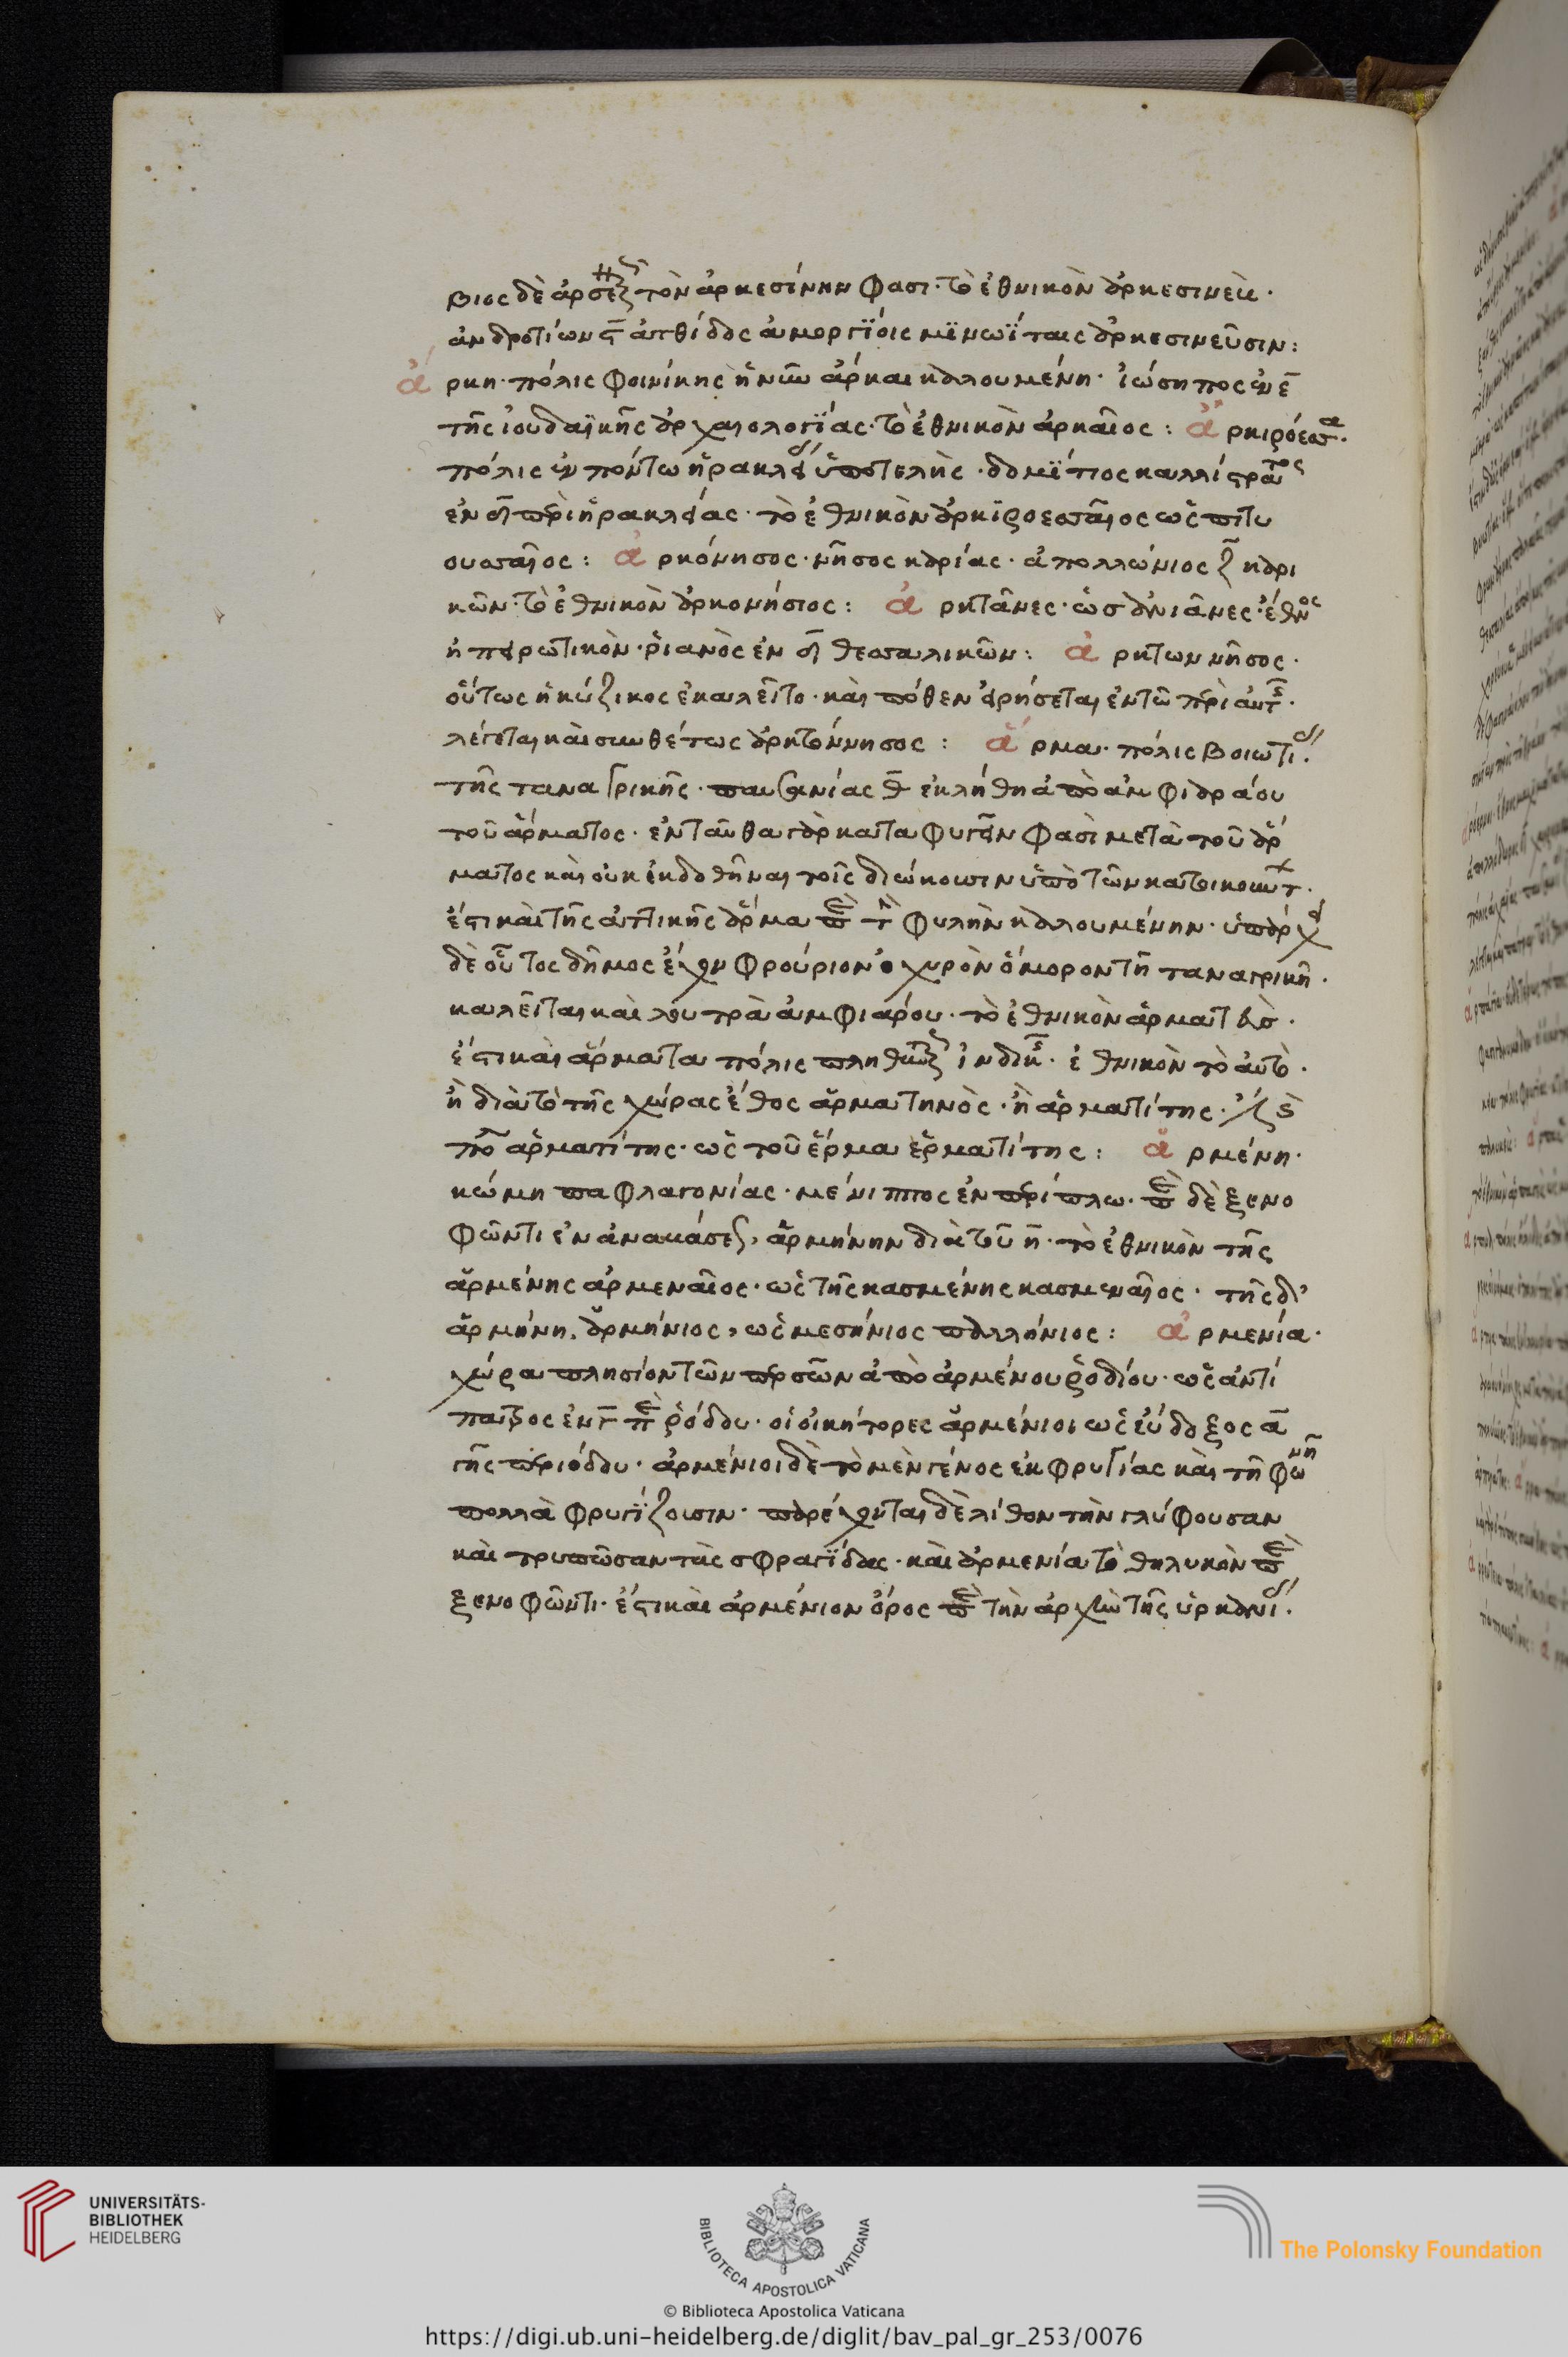 βιος δὲ ἀρσ τὸν ἀρκεσίνην φασι· τὸ ἐθνικὸν ἀρκεσινεὺς·
ἀνδροτίων ϛ ἀτθίδος ἀμοργϊοις μϊνωΐταις ἀρκεσινεῦσιν:
ἄρκη· πόλις φοινίκης ἡ νῦν ἄρκαι καλουμένη· ἰώσηπος ἐν ε
τῆς ἰουδαϊκῆς ἀρχαιολογϊας· τὸ ἐθνικὸν ἀρκαῖος: ἀρκιρόεσσα·
πόλις ἐν πόντω ἡρακλεί ὑποτελὴς· δομϊτιος καλλίστρατος
ἐν περὶ ἡρακλείας· τὸ ἐθνικὸν ἀρκϊροεσσαῖος ὡς πιτυ
ουσσαῖος: ἀρκόνησος· νῆσος καρίας· ἀπολλώνιος ζ καρι
κῶν· τὸ ἐθνικὸν ἀρκονήσιος: ἀρκτᾶνες· ὡς ἔθνος
ἠπειρωτικὸν· ῥιανὸς ἐν δ θεσσαλικῶν: ἄρκτων νῆσος·
οὕτως ἡ κύζικος ἐκαλεῖτο· καὶ πόθεν εἰρήσεται ἐν τῶ περὶ αὐτ·
λέγεται καὶ συνθέτως ἀρκτόννησος: ἅρμα· πόλις βοιωτι·
τῆς ταναγρικῆς· παυσανίας θ ἐκλήθη ἀπὸ ἀμφιαράου
τοῦ ἅρματος· ἐνταῦθα γὰρ καταφυγεῖν φασὶ μετὰ τοῦ ἅρ
ματος καὶ οὐκ ἐκδοθῆναι τοῖς διώκουσιν ὑπὸ τῶν κατοικούντ·
ἔστι καὶ τῆς ἀττικῆς ἅρμα περὶ τὴν φυλὴν καλουμένην· ὑπάρχει
δὲ οὗτος δῆμος ἔχων φρούριον ὀχυρὸν ὅμορον τῆ ταναγρικῆ·
καλεῖται καὶ λουτρὰ ἀμφιαράου· τὸ ἐθνικὸν ἁρματεὺς·
ἔστι καὶ ἅρματα πόλις πλη ἰνδικ· ἐθνικὸν τὸ αὐτὸ·
ἢ διὰ τὸ τῆς χώρας ἔθος ἁρματηνὸς· ἢ ἁρματίτης·
ἁρματίτης· ὡς τοῦ ἕρμα ἑρματίτης: ἁρμένη·
κώμη παφλαγονίας· μένιππος ἐν περίπλω· παρὰ δὲ ξενο
φῶντι ἐν ἀναβάσει, ἁρμήνην διὰ τοῦ η· τὸ ἐθνικὸν τῆς
ἁρμένης ἁρμεναῖος· ὡς τῆς κασμένης κασμεναῖος· τῆς δ'
ἁρμήνη, ἁρμήνιος, ὡς μεσήνιος παλλήνιος: ἀρμενία·
χώρα πλησίον τῶν περσῶν ἀπὸ ἀρμένου ῥοδίου· ὡς ἀντί
πατρος ἐν γ περὶ ῥόδου· οἱ οἰκήτορες ἀρμένιοι ὡς εὔδοξος α
γῆς περιόδου· ἀρμένιοι δὲ τὸ μὲν γένος ἐκ φρυγίας καὶ τῆ φωνῆ
πολλὰ φρυγϊζουσιν· παρέχονται δὲ λίθον τὴν γλύφουσαν
καὶ τρυπῶσαν τὰς σφραγϊδας· καὶ ἀρμενία τὸ θηλυκὸν παρὰ
ξενοφῶντι· ἔστι καὶ ἀρμένιον ὄρος περὶ τὴν ἀρχὴν τῆς
UNIVERSITÄTS-
BIBLIOTHEK
HEIDELBERG
BIBLIOTECA APOSTOLICA VATICANA
The Polonsky Foundation
© Biblioteca Apostolica Vaticana
https://digi.ub.uni-heidelberg.de/diglit/bav_pal_gr_253/0076